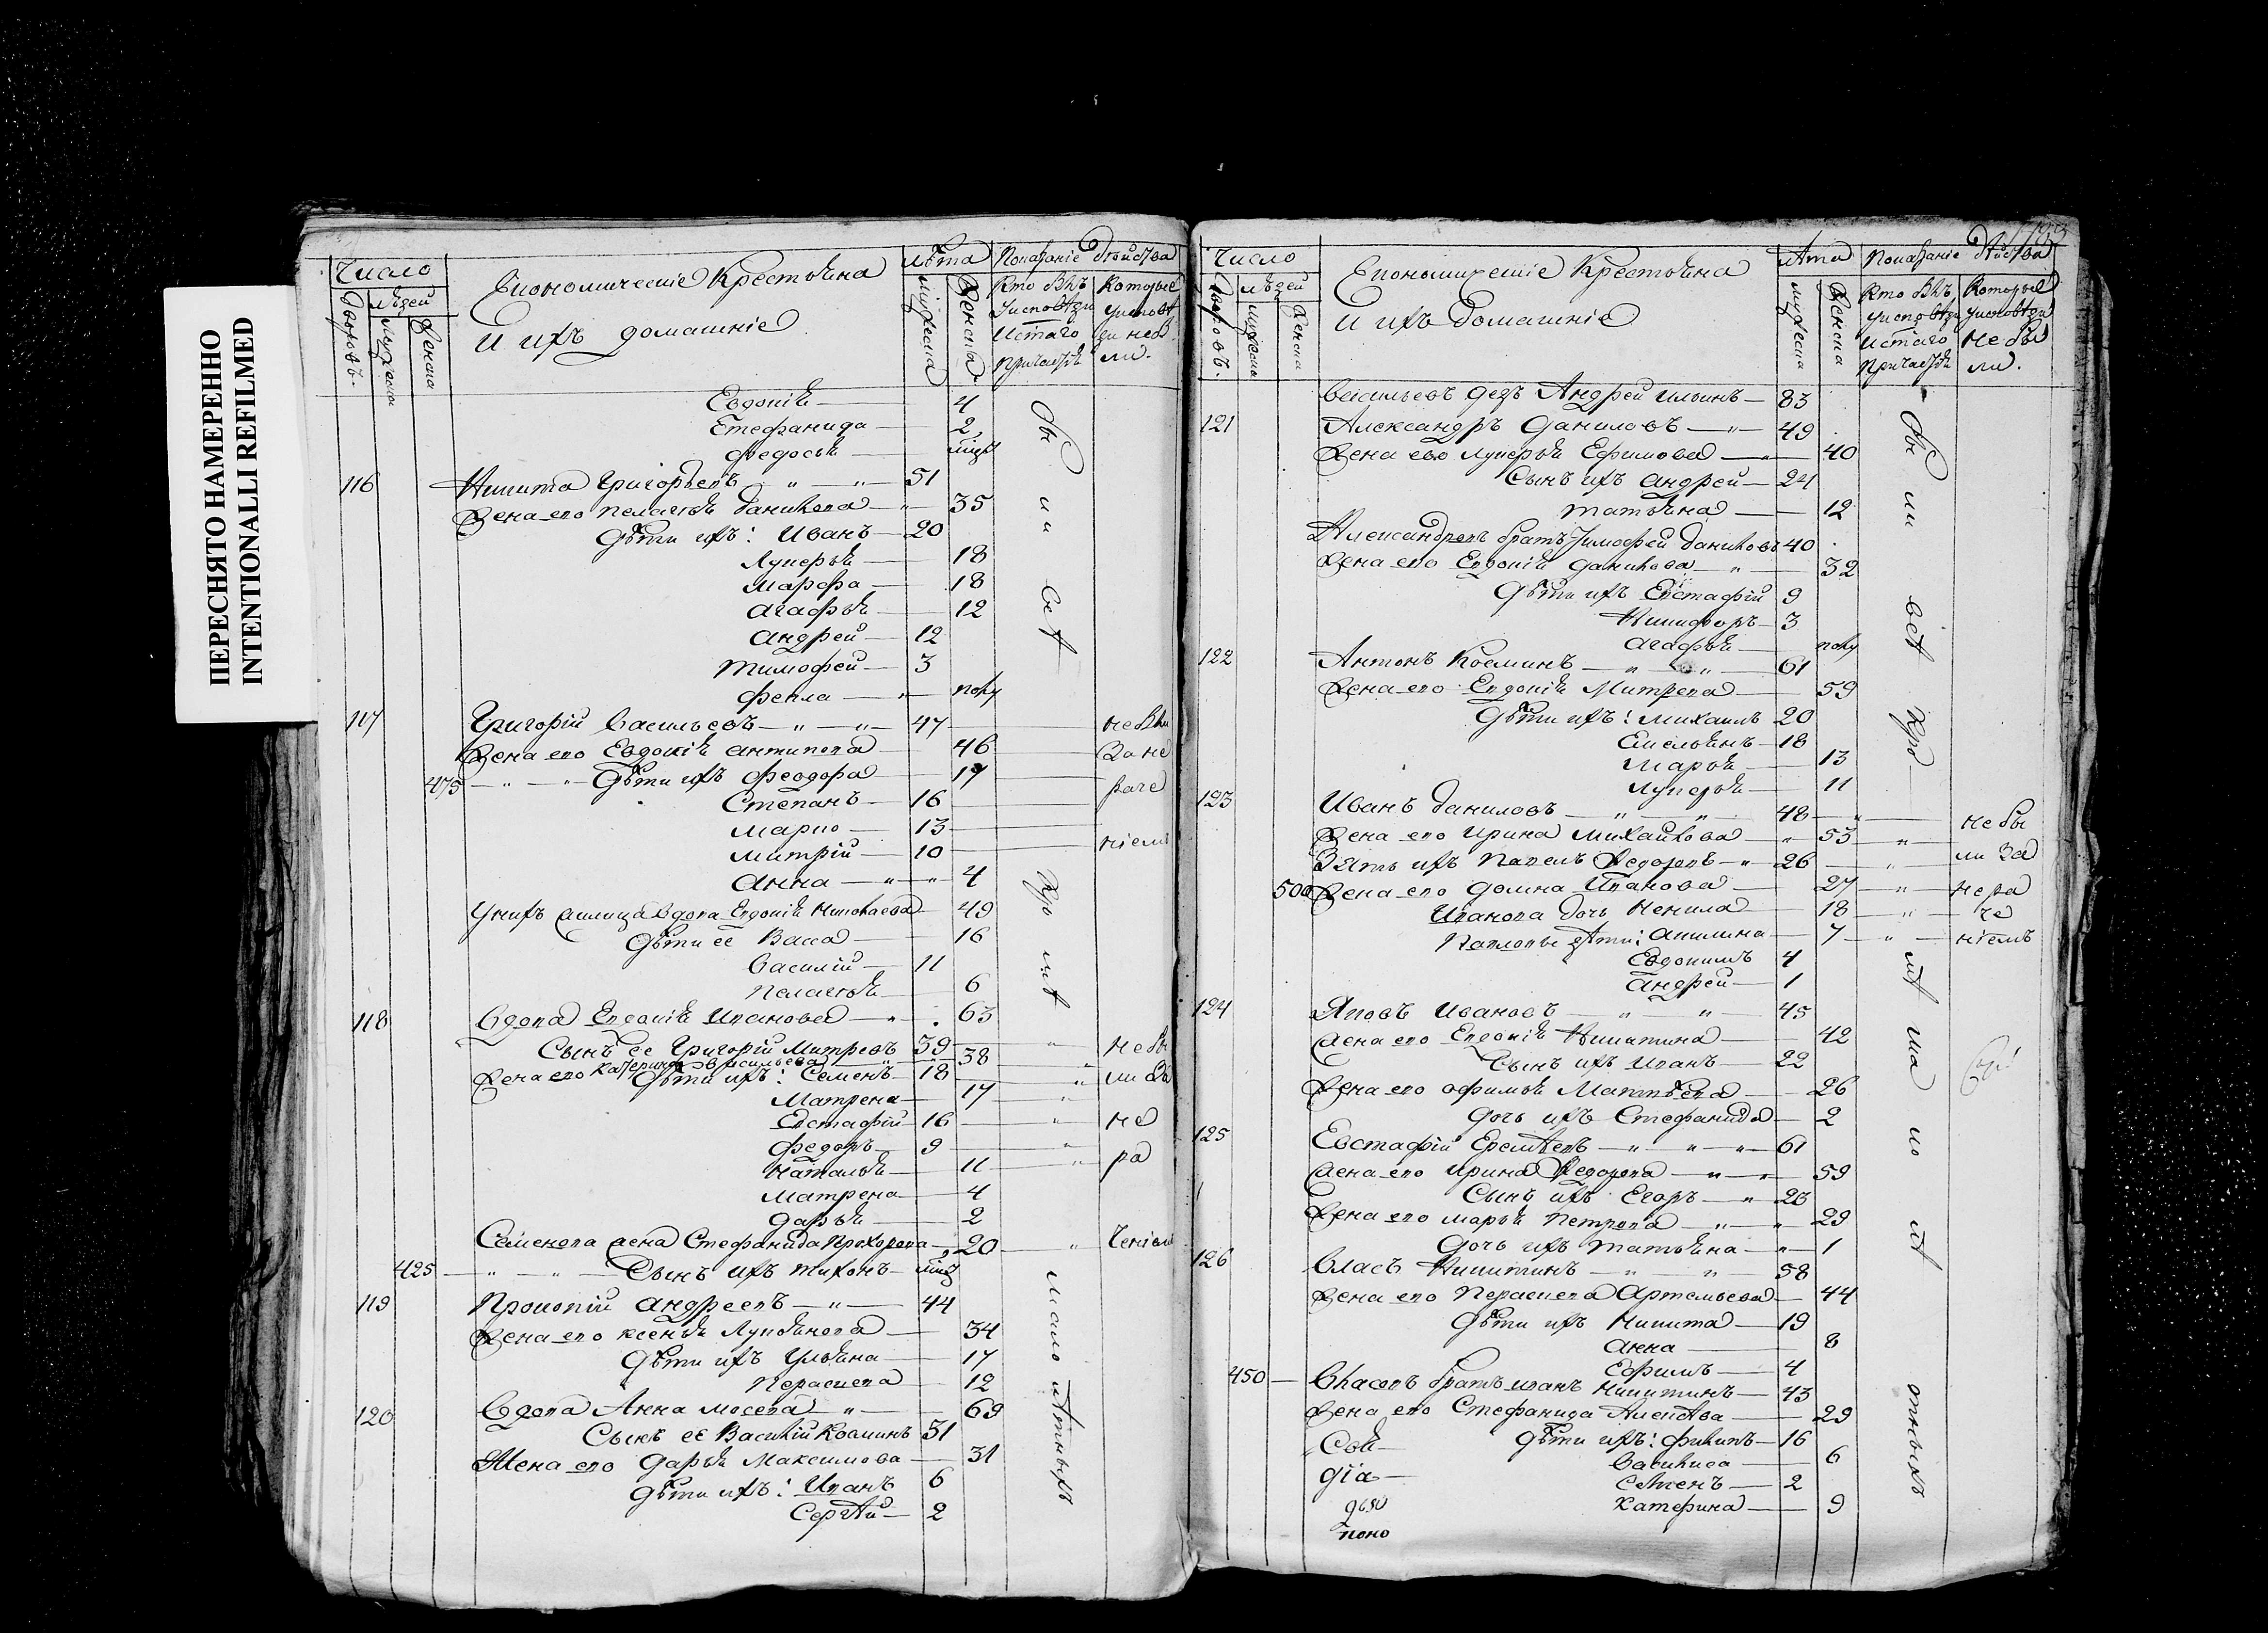 ПЕРЕСНЯТО НАМЕРЕННО
INTENTIONALLI REFILMED
Число
Дворовъ
людей
Мужеска
Женска
Економическіе Крестьяна
И ихъ домашніе
лѣта
Мужеска
Женска
Показаніе действа
Кто былъ
у исповѣди
и с̃таго
причастія
Которые
у исповѣ
ди не бы
ли.
Евдокія — 4
Стефанида — 2
Федосья — мцъ
116 Никита Григорьевъ — 51
Жена ево Пелагея Данилова — 35
Дѣти ихъ: Иванъ — 20
Лукерья — 18
Марфа — 18
Агафья — 12
Андрей — 12
Тимофей — 3
Фекла — полу
117 Григорій Васильевъ — 47 не бы
Жена ево Евдокія Антипова — 46 за не
475 Дѣти ихъ Феодора — 17 раче
Степанъ — 16
Марко — 13
Митрій — 10 ніемъ
Анна — 4
У нихъ вдова Евдокія Николаева — 49
Дѣти ее Васса — 16
Василій — 11
Пелагея — 6
118 Вдова Евдокія Иванова — 63
Сынъ ее Григорій Митревъ 39 не бы
Жена ево Катерина Васильева — 38
Дѣти ихъ: Семенъ — 18 ли за
Матрена — 17
Евстафій — 16 не
Федоръ — 9
Наталья — 11 ра
Матрена — 4
Дарья — 2
Семенова жена Стефанида Прохорова — 20 ченіемъ
425 Сынъ ихъ Тихонъ — мцъ
119 Прокопій Андреевъ — 44
Жена ево Ксенья Лукьянова — 34
Дѣти ихъ Ульяна — 17
Парасκева — 12
120 Вдова Анна Мосева — 69
Сынъ ее Василій Козминъ 31
Жена ево Дарья Максимова — 31
Дѣти ихъ: Иванъ 6
Сергѣй — 2
бы
ли
всѣ
кро
мѣ
мало
лѣтныхъ
Число
Дворовъ.
людей
Мужеска
Женска
Економическіе Крестьяна
И ихъ Домашніе
лѣта
Мужеска
Женска
Показаніе Дѣйства
Кто былъ
у исповѣди
и с̃таго
Причастія
Которые
у исповѣди
не бы
ли.
Васильевъ дедъ Андрей Ильинъ — 83
121 Александръ Даниловъ — 49
Жена ево Лукерья Ефимова — 40
Сынъ ихъ Андрей — 24
Татьяна — 12
Александровъ братъ Тимофей Даниловъ 40
Жена ево Евдокія Данилова — 32
Дѣти ихъ Евстафій 9
Никифоръ — 3
Агафья — полу
122 Антонъ Козминъ — 61
Жена ево Евдокія Митрева — 59
Дѣти ихъ: Михаилъ 20
Емельянъ — 18
Марья — 13
Лукерья — 11
123 Иванъ Даниловъ — 48 не бы
Жена ево Ирина Михайлова — 53
Зять ихъ Павелъ Федоровъ — 26 ли за
500 Жена ево Домна Иванова — 27 нера
Иванова дочь Ненила — 18 че
Павловы дѣти: Акилина — 7 ніемъ
Евдокимъ 4
Андрей — 1
124 Яковъ Ивановъ — 45
Жена ево Евдокія Никитина — 42
Сынъ ихъ Иванъ — 22
Жена ево Офимья Матвѣева — 26
Дочь ихъ Стефанида — 2
125 Евстафій Еремѣевъ — 61
Жена ево Ирина Федорова — 59
Сынъ ихъ Егоръ — 23
Жена ево Марья Петрова — 29
Дочь ихъ Татьяна — 1
126 Власъ Никитинъ — 58
Жена ево Парасκева Артемьева — 44
Дѣти ихъ Никита — 19
Анна — 8
Ефимъ — 4
450 Власовъ братъ Иванъ Никитинъ — 43
Жена ево Стефанида Алексѣва — 29
Дѣти ихъ: Филипъ — 16
Василиса — 6
Семенъ — 2
Катерина — 9
діа
поно
бы
ли
всѣ
кро
мѣ
ма
ло
лѣ
тныхъ